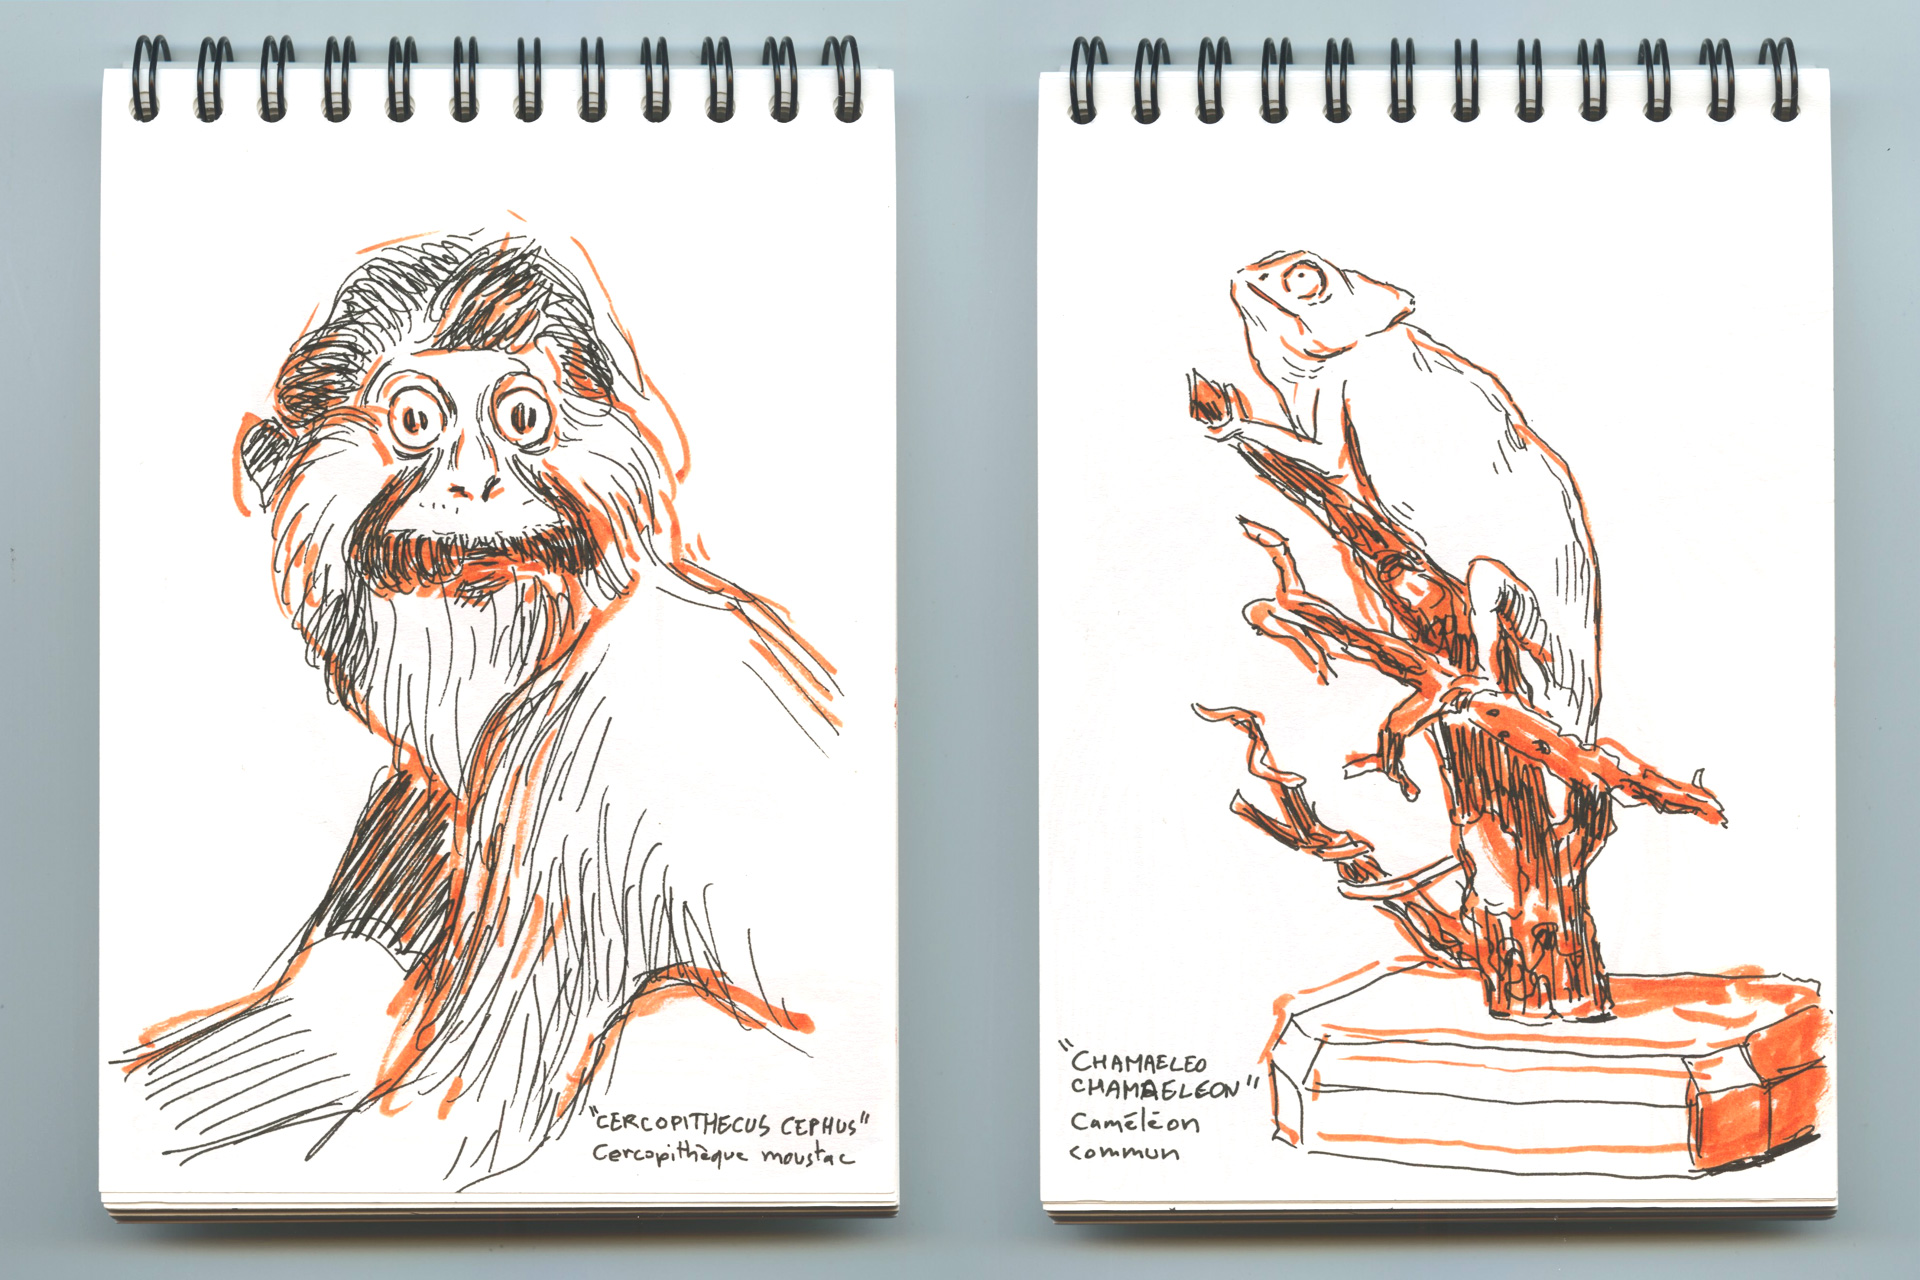 "CERCOPITHECUS CEPHUS"
Cercopithèque moustac
"CHAMAELEO
CHAMAELEON"
Caméléon
commun